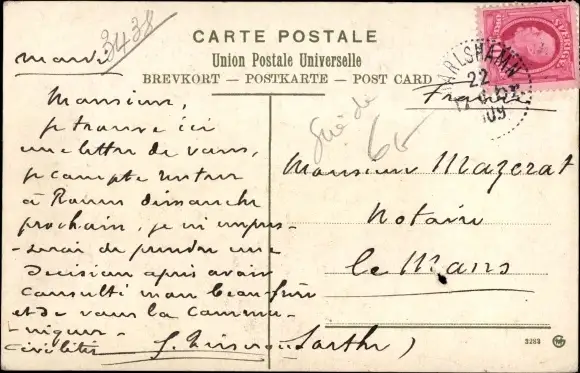 3438
CARTE POSTALE
Union Postale Universelle
BREVKORT — POSTKARTE — POST CARD
SVERIGE
KARLSHAMN
22
109
mardi
France
Monsieur,
je trouve ici
une lettre de vous,
je compte rentrer
à dimanche
prochain, je m'empres-
-serai de prendre une
décision après avoir
consulté mon beau-frère
et de vous la commu-
-niquer.
civilités
65
Monsieur Mazerat
Notaire
le Mans
Sarthe)
3283